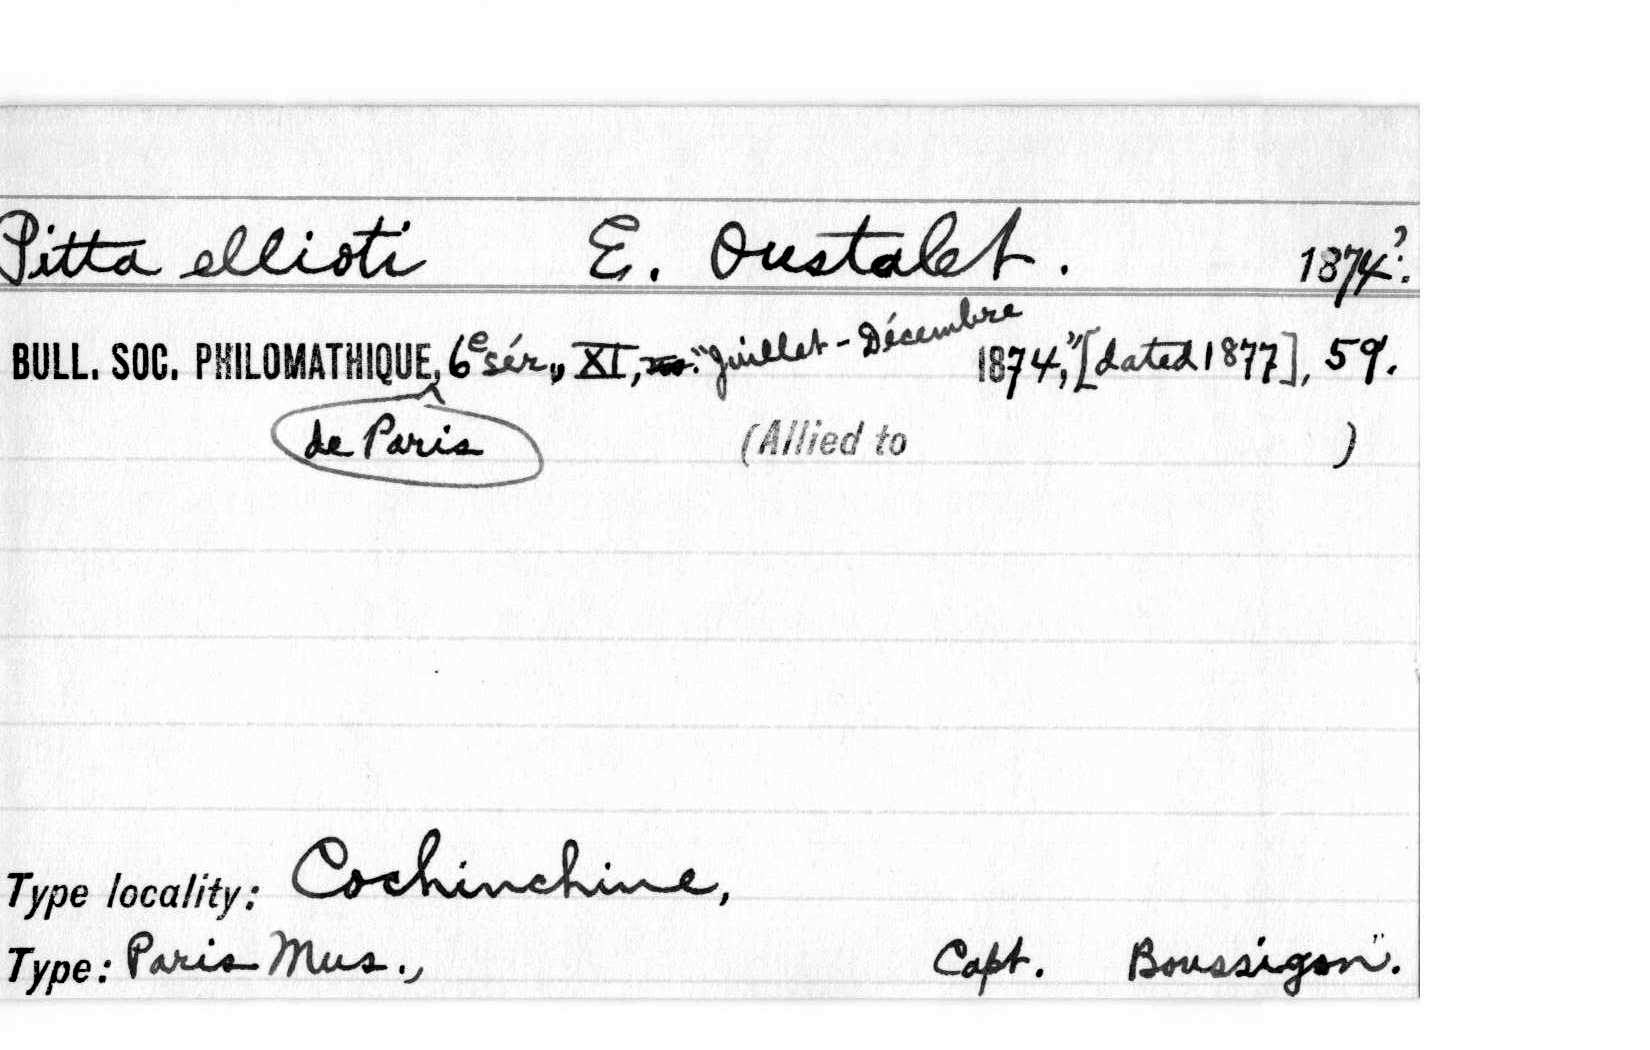 Pitta ellioti E. Oustalet. 1874?.
BULL. SOC. PHILOMATHIQUE, 6e sér., XI, "Juillet - Décembre 1874," [dated 1877], 59.
de Paris (Allied to )
Type locality: Cochinchine,
Type: Paris Mus., Capt. Boussigon".